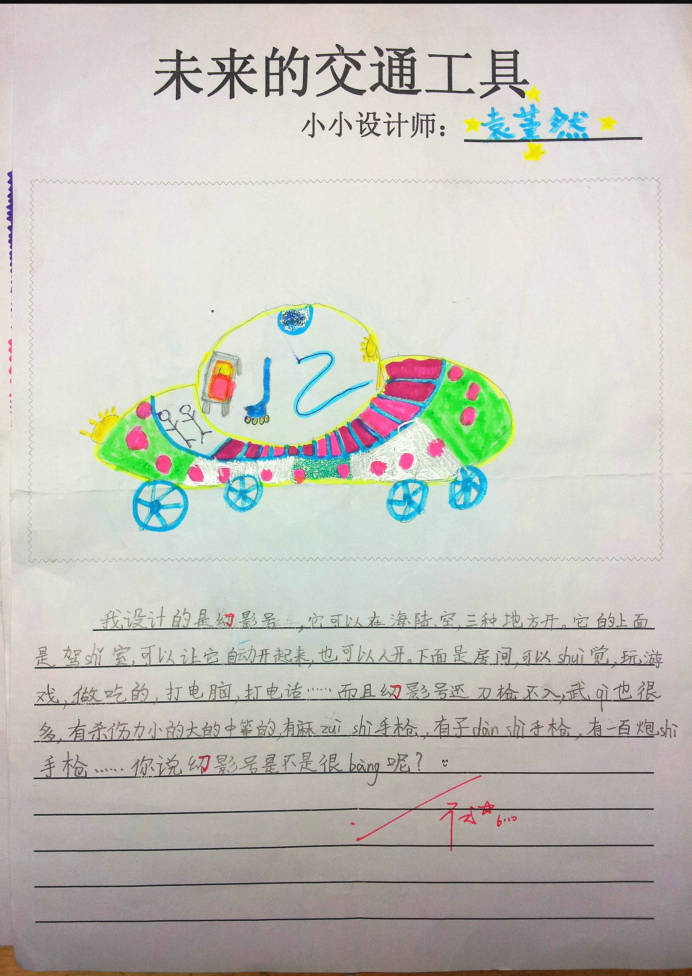 未来的交通工具
小小设计师：袁堇然
我设计的是幻影号，它可以在海陆.空,三种地方开。它的上面
是驾shǐ室,可以让它自动开起来,也可以人开。下面是房间,可以shuì觉,玩游
戏,做吃的,打电脑,打电话……而且幻影号还刀枪不入,武qì也很
多,有杀伤力小的大的中等的,有麻zuì shì手枪,有子dàn shì手枪,有一百炮shì
手枪……你说幻影号是不是很bàng呢？